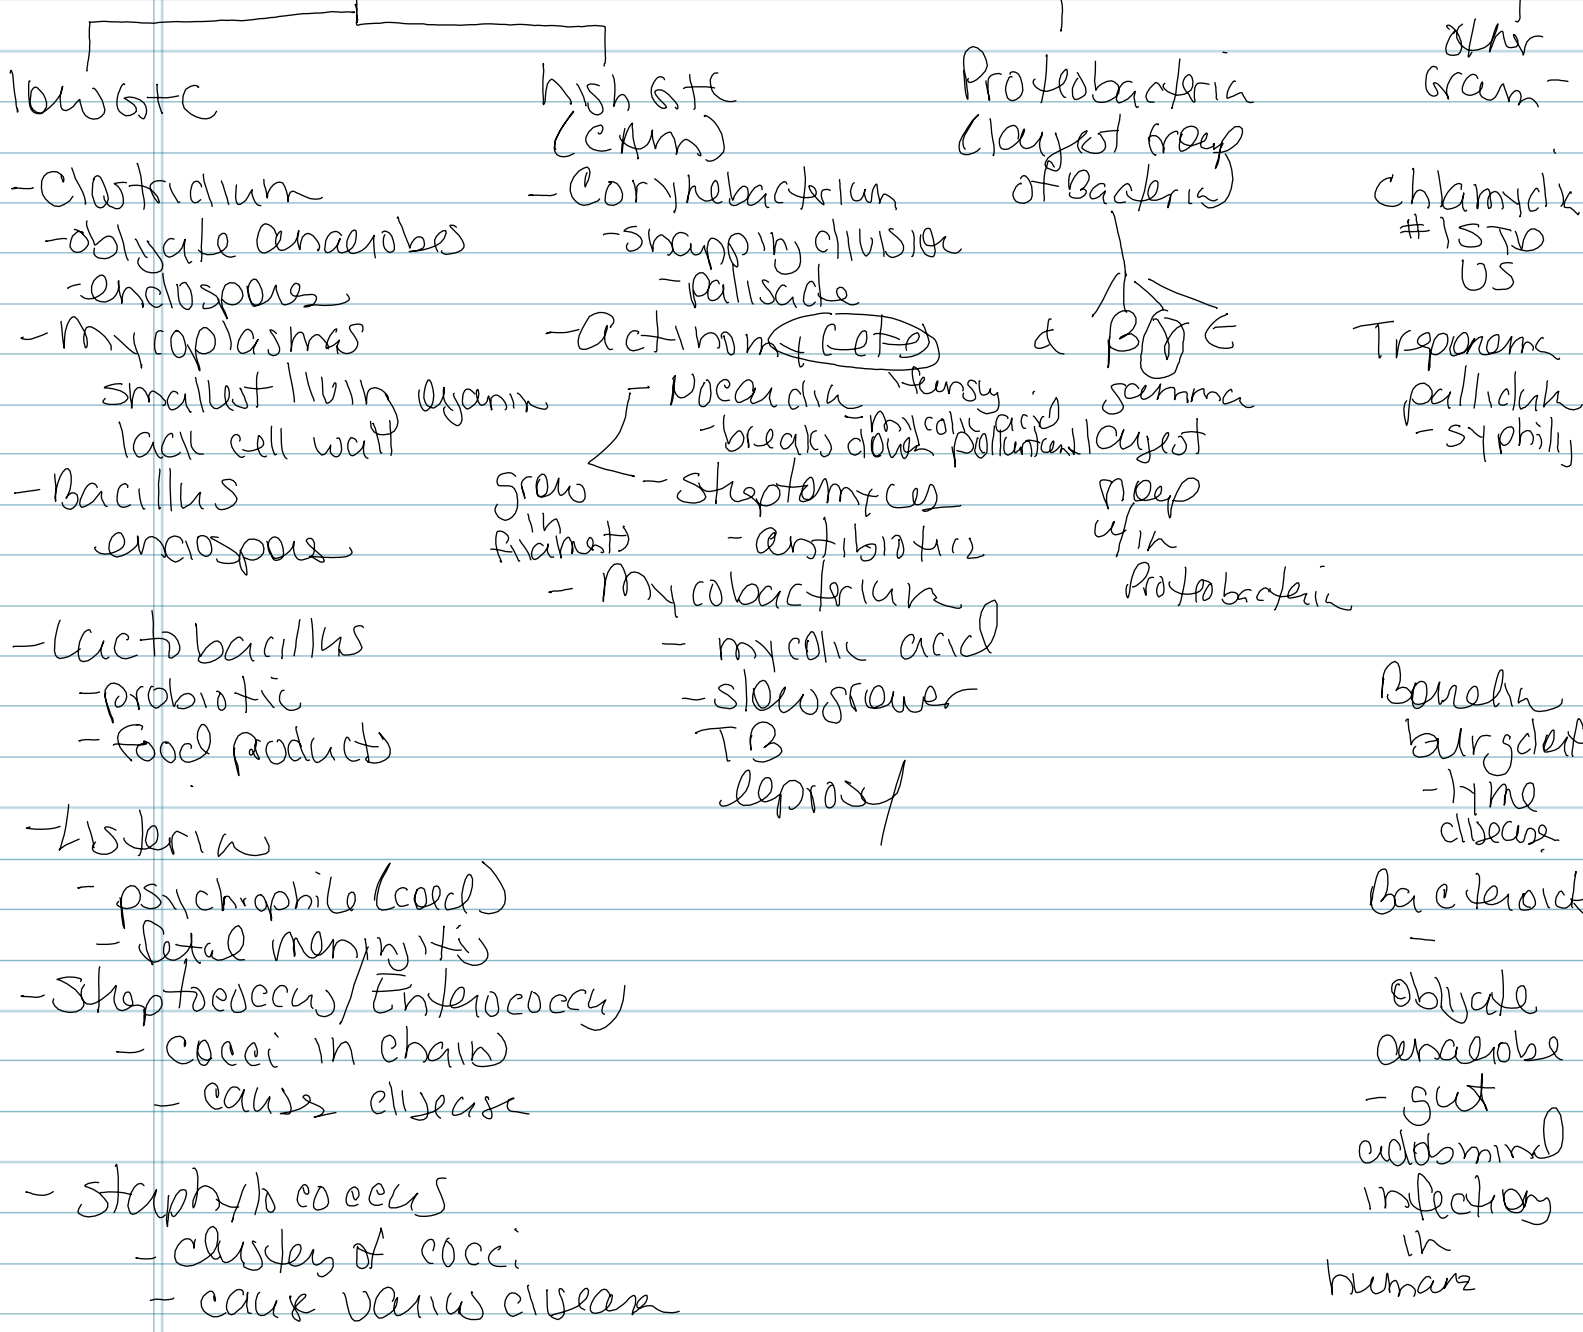 low G+C
-Clostridium
-obligate anaerobes
-endospores
-Mycoplasmas
smallest livin organism
lack cell wall
-Bacillus
endospore
-Lactobacillus
-probiotic
-food products
-Listeria
- psychrophile (cold)
- fetal meningitis
-Streptococcus/Enterococcus
- cocci in chain
- causes disease
- Staphylococcus
- clusters of cocci
- cause various disease
high G+C
(CAM)
- Corynebacterium
-snapping division
-palisade
-Actinomycetes
- Nocardia
-mycolic acid
-breaks down pollutant
grow
in
filaments
- Streptomyces
- antibiotics
- Mycobacterium
- mycolic acid
-slow grower
TB
leprosy
Proteobacteria
(largest group
of Bacteria)
α β γ ε
gamma
largest
group
w/in
Proteobacteria
other
Gram -
Chlamydia
#1 STD
US
Treponema
pallidum
- syphilis
Borrelia
burgdorf
-lyme
disease
Bacteroid
-
obligate
anaerobe
- gut
abdominal
infections
in
humans